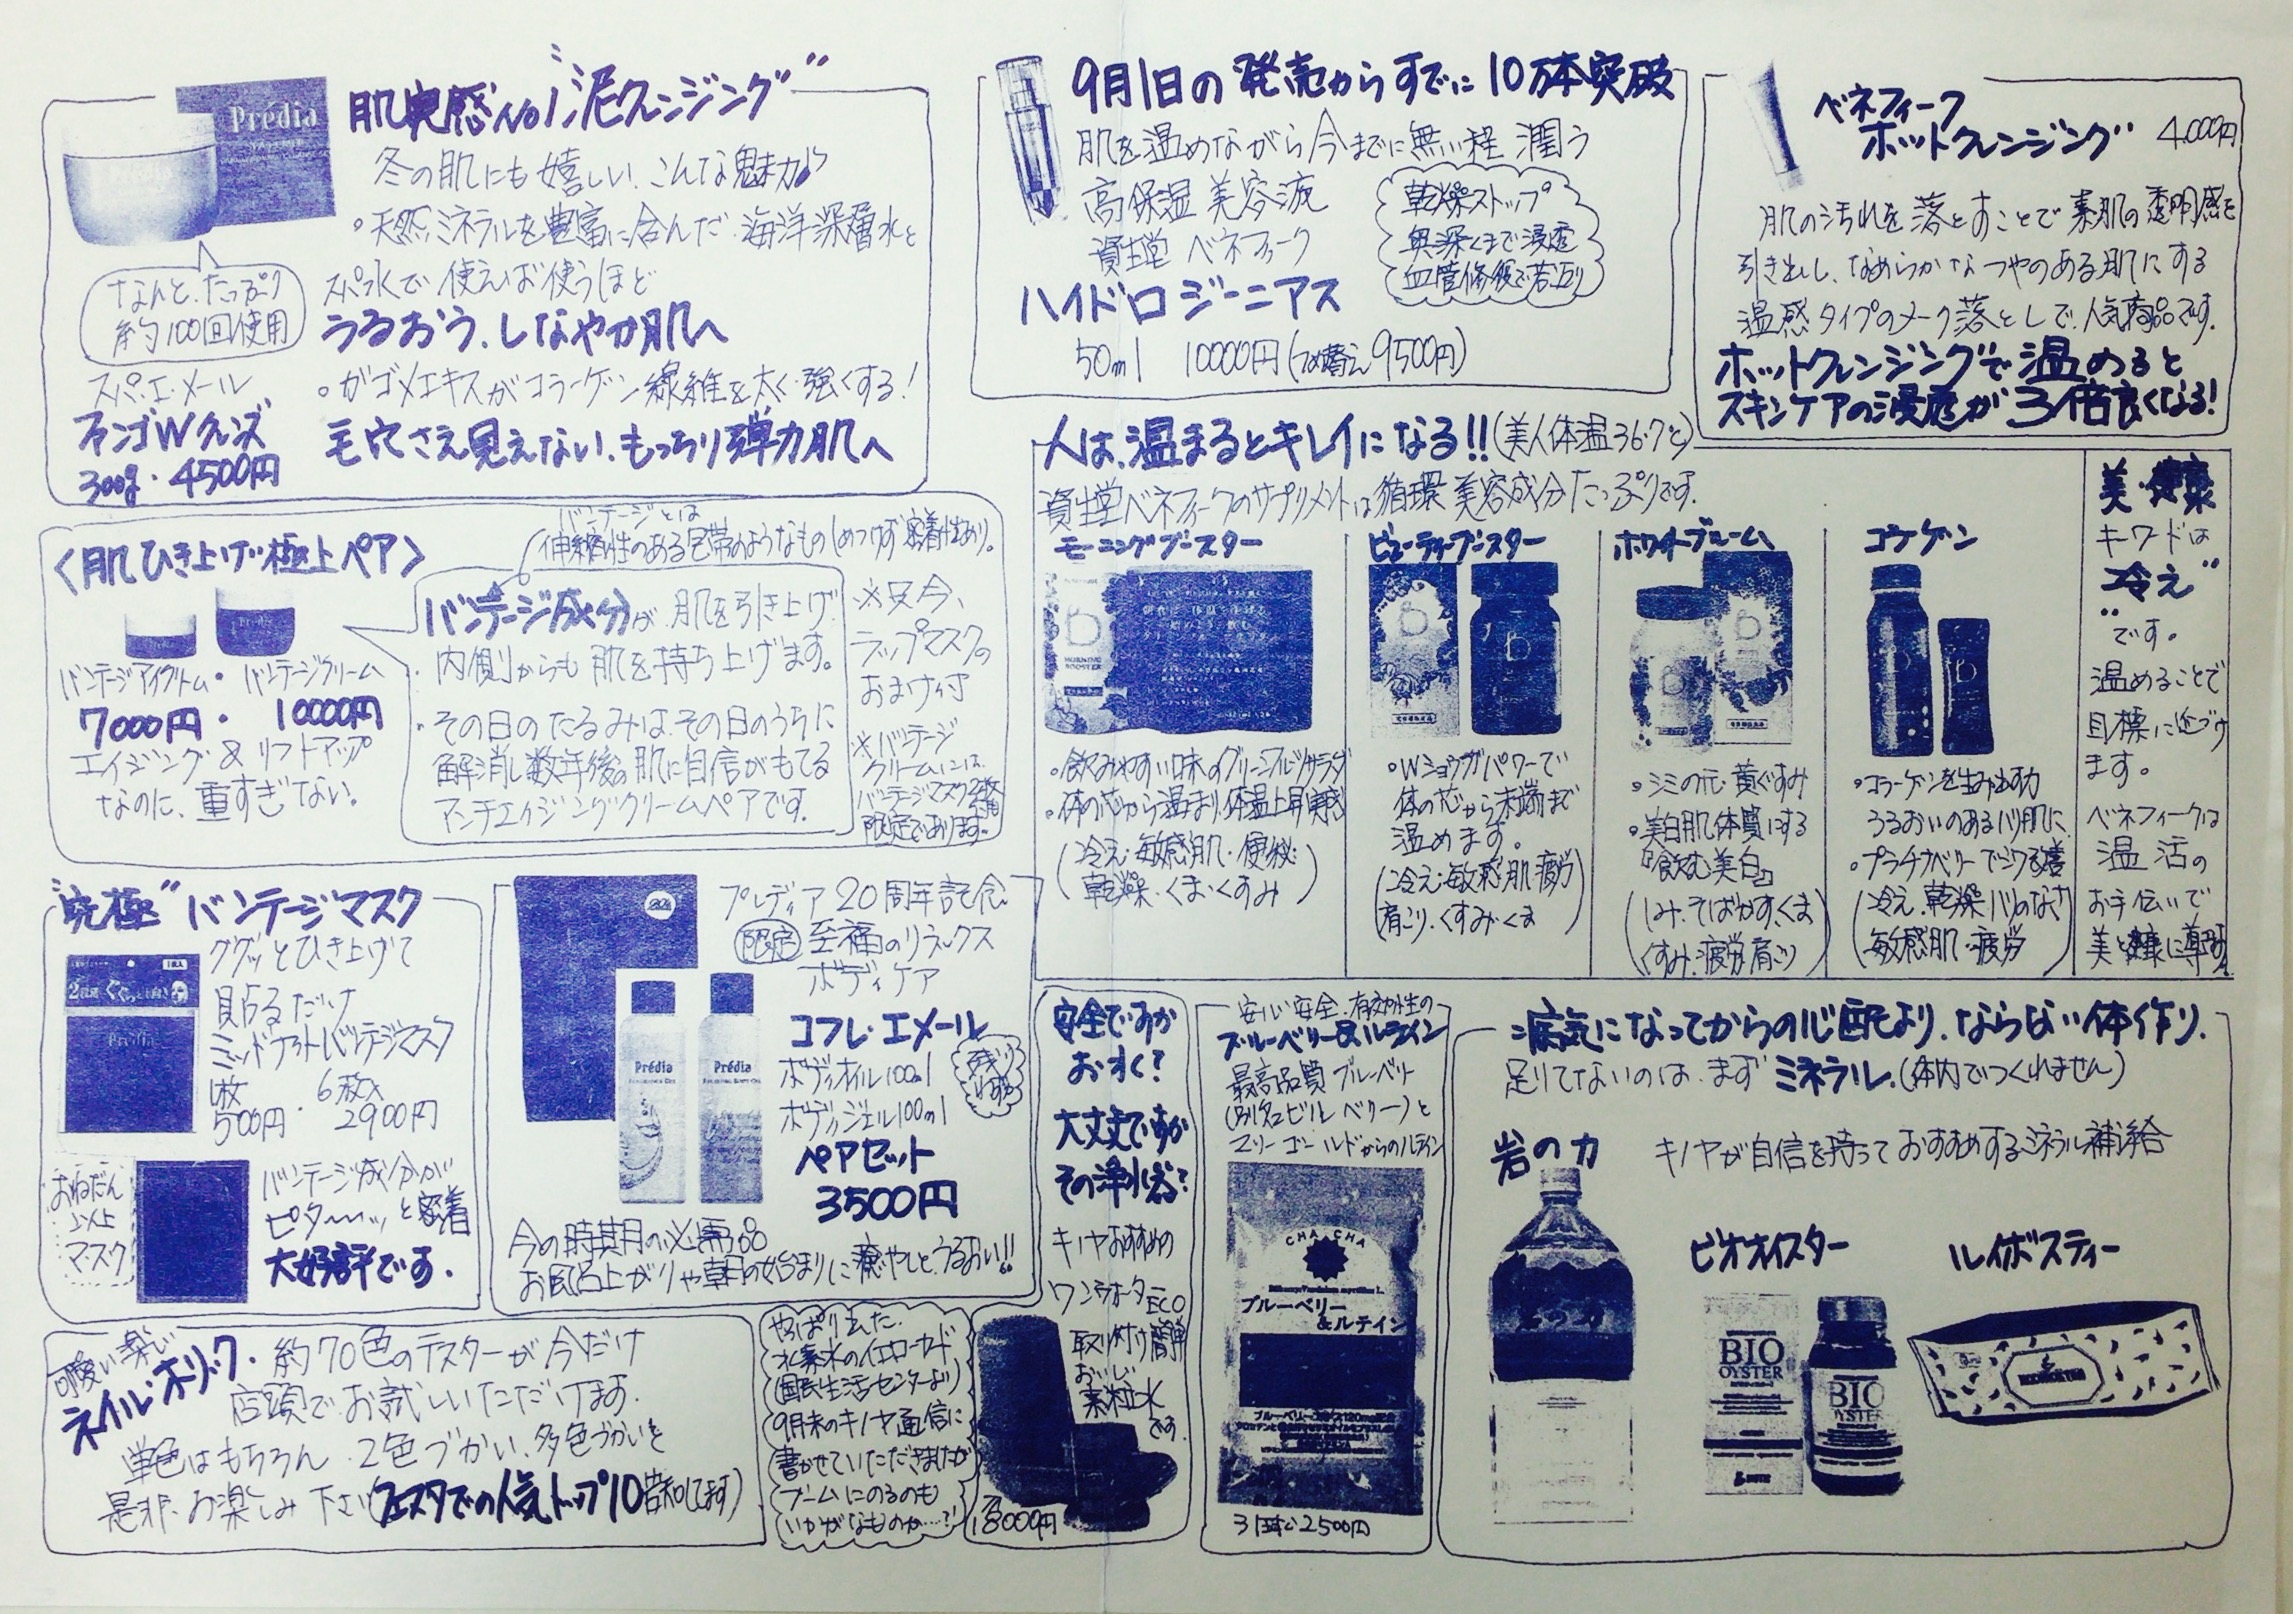 Prédia
肌実感No1 "泥クレンジング"
冬の肌にも嬉しい、こんな魅力が
・天然ミネラルを豊富に含んだ海洋深層水と
スパ水で使えば使うほど
うるおう、しなやか肌へ
・ガゴメエキスがコラーゲン線維を太く強くする!
毛穴さえ見えない、もっちり弾力肌へ
なんと、たっぷり
約100回使用
スパ・エ・メール
ファンゴWクレンズ
300g・4500円
9月1日の発売からすでに10万本突破
肌を温めながら今までに無い程潤う
高保湿美容液
資生堂 ベネフィーク
ハイドロジーニアス
50ml 10000円(つめ替え9500円)
乾燥ストップ
奥深くまで浸透
血管修復で若返り
ベネフィーク
ホットクレンジング 4.000円
肌の汚れを落とすことで素肌の透明感を
引き出し、なめらかなつやのある肌にする
温感タイプのメーク落としで、人気商品です。
ホットクレンジングで温めると
スキンケアの浸透が3倍良くなる!
<肌ひき上げ"極上ペア>
バンテージとは
伸縮性のある包帯のようなもの しめつけず密着性あり。
バンテージアイクリーム・バンテージクリーム
7000円・10000円
エイジング&リフトアップ
なのに、重すぎない。
バンテージ成分が肌を引き上げ
内側からも肌を持ち上げます。
・その日のたるみは、その日のうちに
解消し数年後の肌に自信がもてる
アンチエイジングクリームペアです。
※只今、
ラップマスクの
おまけ付
※バンテージ
クリームには
バンテージマスク2枚
限定であります。
人は、温まるとキレイになる!!(美人体温36.7℃)
資生堂ベネフィークのサプリメントは循環美容成分たっぷりです。
モーニングブースター
MORNING BOOSTER
・飲みやすい味のグリーンフルーツサラダ
・体の芯から温まり、体温上昇実感
(冷え・敏感肌・便秘
乾燥・くま・くすみ)
ビューティーブースター
・Wショウガパワーで
体の芯から末端まで
温めます。
(冷え・敏感肌疲労
肩こり・くすみ・くま)
ホワイトブルーム
・シミの元・黄ぐすみ
・美白肌体質にする
『飲む美白』
(しみ・そばかす・くま
くすみ・疲労肩こり)
コラーゲン
・コラーゲンを生み出す力
うるおいのあるハリ肌に
・プラチナベリーでシワ改善
(冷え・乾燥・ハリのなさ
敏感肌・疲労)
美・健康
キーワードは
"冷え"
です。
温めることで
目標に近づけ
ます。
ベネフィークは
温活の
お手伝いで
美と健康に導きます
"究極"バンテージマスク
ググッとひき上げて
貼るだけ
ミッドナイトバンテージマスク
1枚 500円・6枚入 2900円
Prédia
おねだん
以上
マスク
バンテージ成分が
ピターーッと密着
大好評です。
プレディア20周年記念
限定 至福のリラックス
ボディケア
コフレ・エメール
ボディオイル100ml
ボディジェル100ml
ペアセット
3500円
残り
少数
Prédia
Prédia
今の時期の必需品
お風呂上がりや朝の始まりに癒やしと、うるおい!!
安全ですか
お水?
大丈夫ですか
その浄水器?
キノヤおすすめの
ワンウォータECO
取り付け簡単
おいしい
素粒水
です。
18000円
安心安全・有効性の
ブルーベリー&ルテイン
最高品質ブルーベリー
(別名ビルベリー)と
マリーゴールドからのルテイン
CHA CHA
ブルーベリー
&ルテイン
31日分2500円
病気になってからの心配より、ならない体作り、
足りてないのは、まずミネラル。(体内でつくれません)
岩の力 キノヤが自信を持っておすすめするミネラル補給
ビオオイスター
ルイボスティー
BIO
OYSTER
BIO
OYSTER
可愛い楽しい
ネイルホリック・約70色のテスターが今だけ
店頭でお試しいただけます。
単色はもちろん、2色づかい、多色づかいを
是非、お楽しみ下さい(フェスタでの人気トップ10告知してます)
やっぱり出た、
水素水のイエローカード
(国民生活センターより)
9月末のキノヤ通信に
書かせていただきましたが
ブームにのるのも
いかがなものか…?